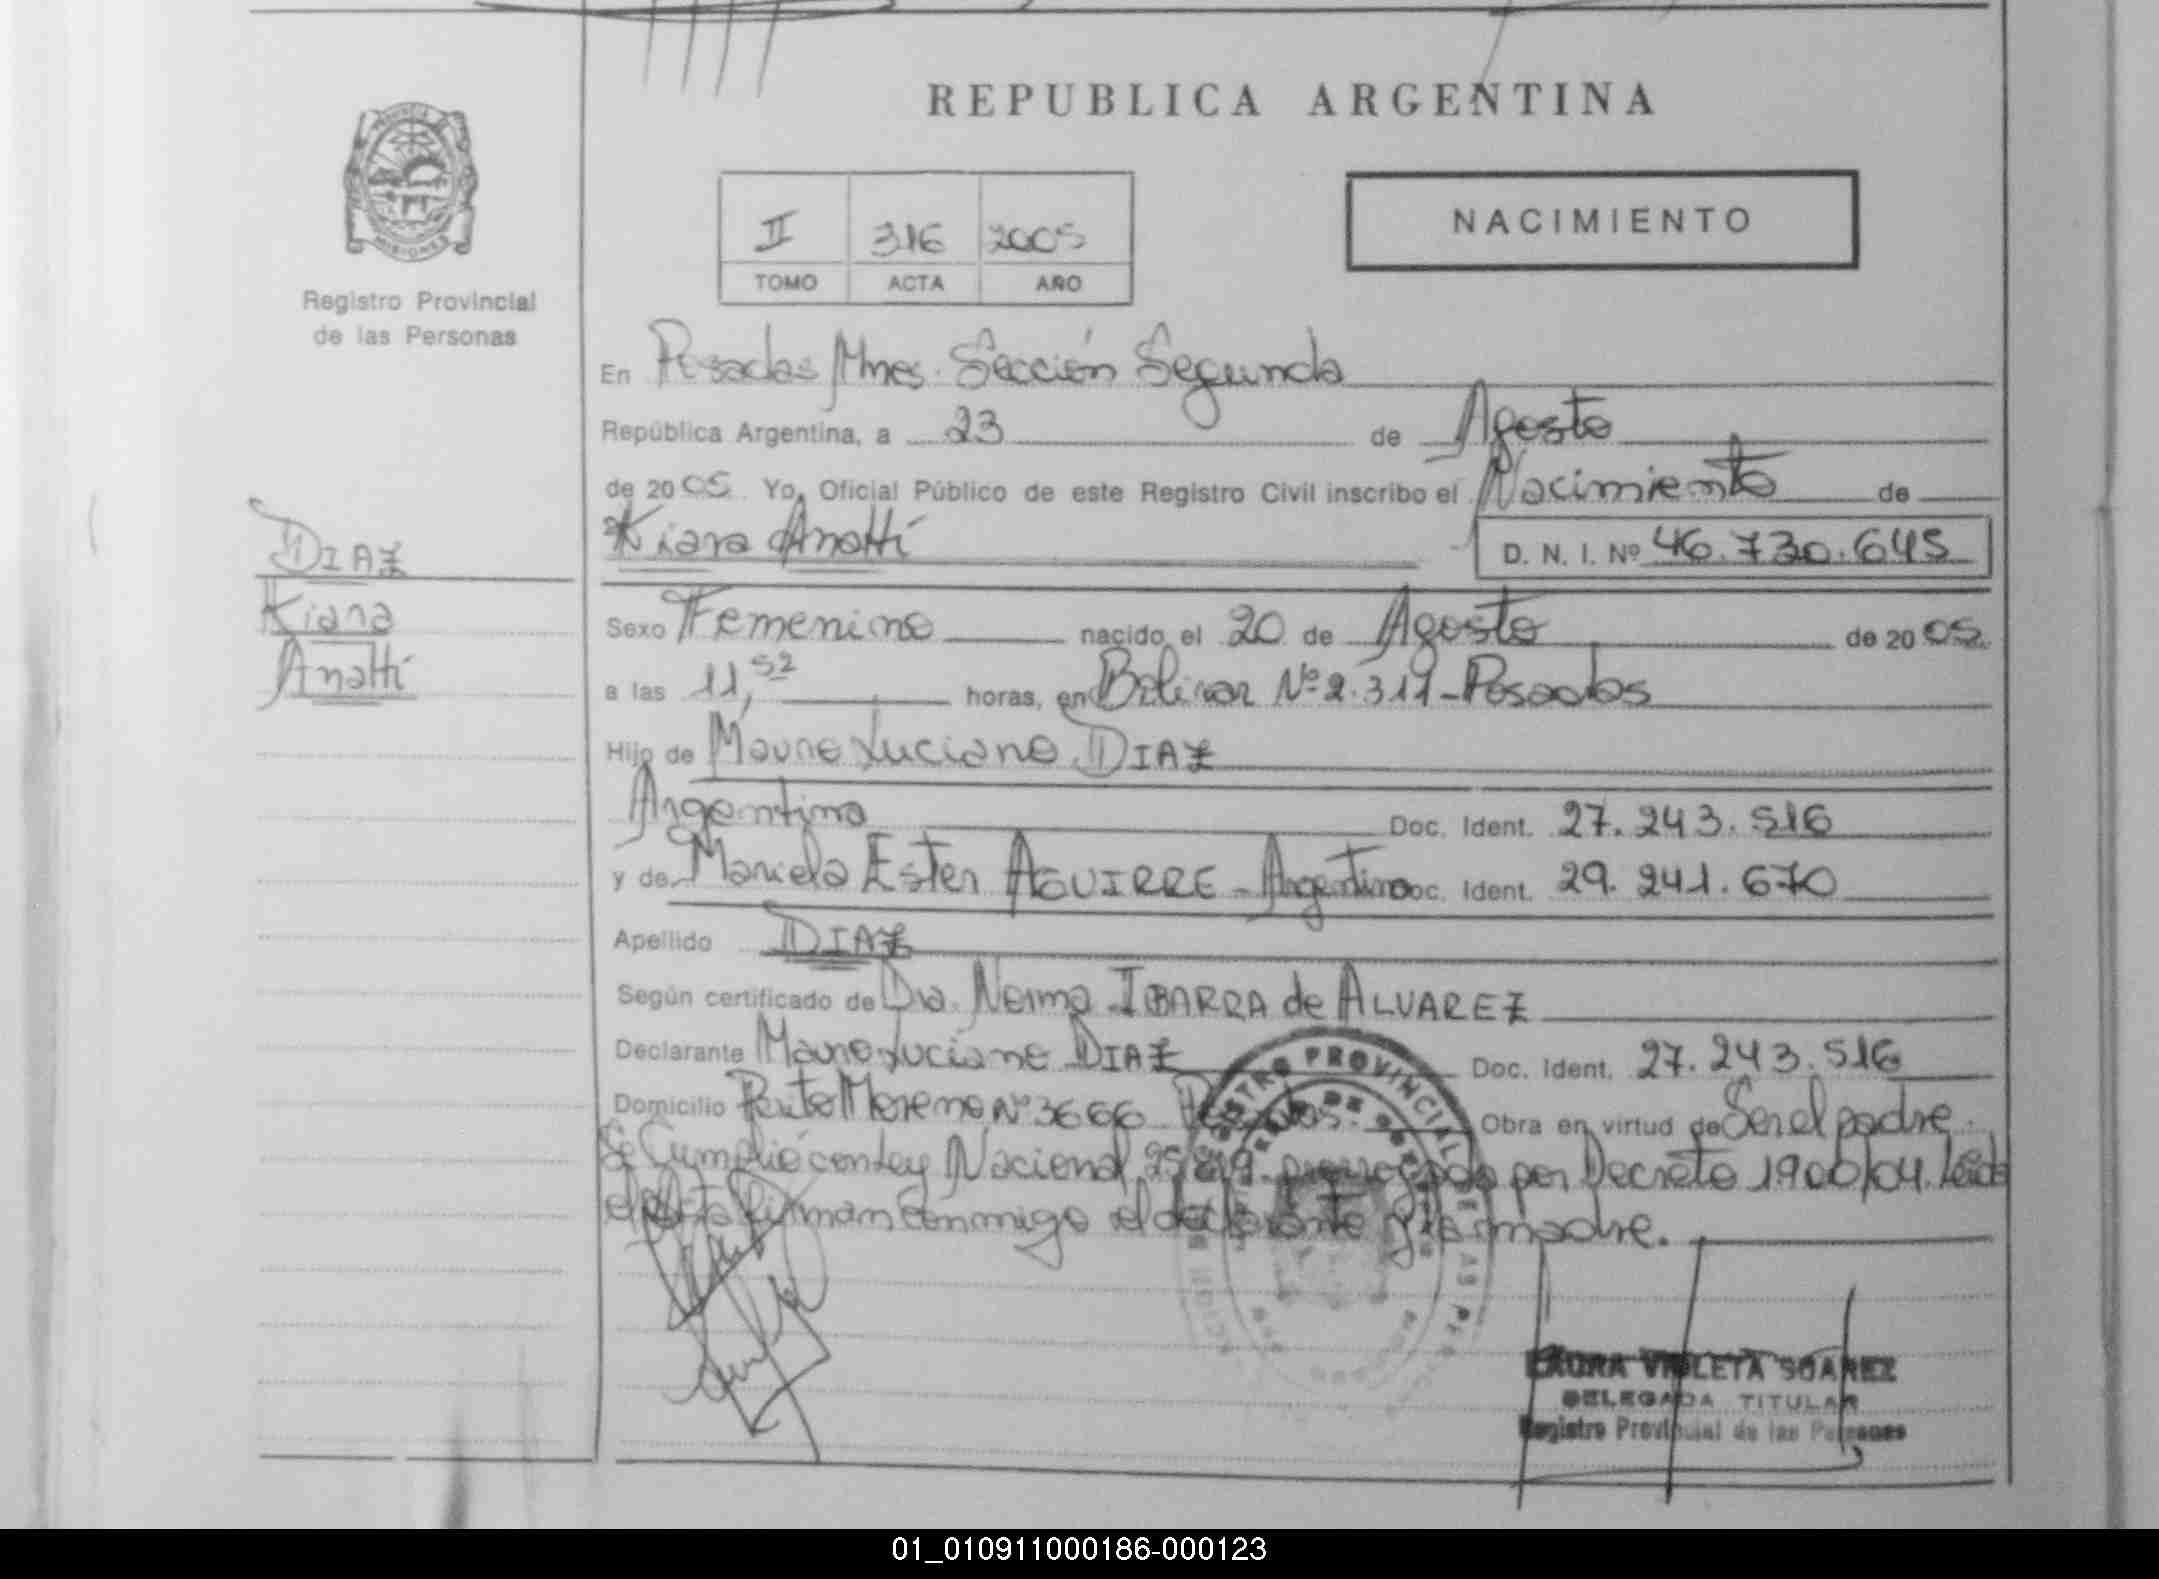 REPUBLICA ARGENTINA
MISIONES
Registro Provincial
de las Personas
II 316 2005
TOMO ACTA AÑO
NACIMIENTO
En Posadas Mnes. Sección Segunda
República Argentina, a 23 de Agosto
de 2005. Yo, Oficial Público de este Registro Civil inscribo el Nacimiento de
Kiara Anahí
D. N. I. Nº 46.730.645
DIAZ
Kiara
Anahí
Sexo Femenino nacido el 20 de Agosto de 2005.
a las 11,52 horas, en Bolivar Nº 2.317-Posadas
Hijo de Mauro Luciano DIAZ
Argentino Doc. Ident. 27.243.516
y de Mariela Ester AGUIRRE - Argentina Doc. Ident. 29.241.670
Apellido DIAZ
Según certificado de Dra. Norma IBARRA de ALVAREZ
Declarante Mauro Luciano DIAZ Doc. Ident. 27.243.516
Domicilio Perito Moreno Nº 3666 Posadas. Obra en virtud de Ser el padre.
Se Cumplió con Ley Nacional 25819 prorrogada por Decreto 1900/04. Leída
el Acta firman conmigo el declarante y la madre.
REGISTRO PROVINCIAL DE LAS PERSONAS
LAURA VIOLETA SOAREZ
DELEGADA TITULAR
Registro Provincial de las Personas
01_010911000186-000123